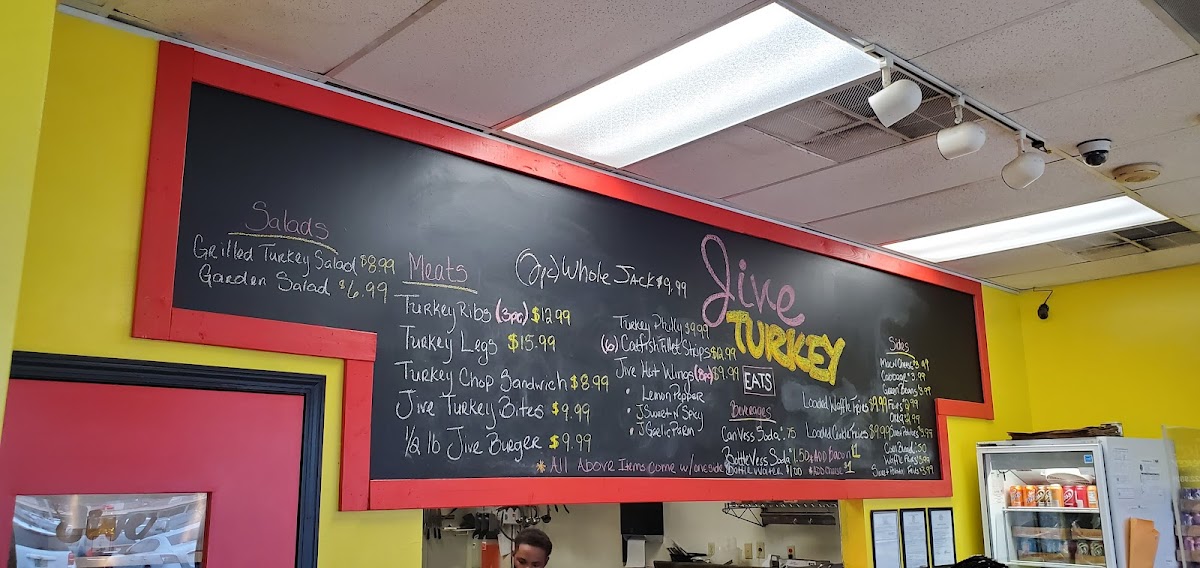 Salads
Grilled Turkey Salad $8.99
Garden Salad $6.99
Meats
Turkey Ribs (3pc) $12.99
Turkey Legs $15.99
Turkey Chop Sandwich $8.99
Jive Turkey Bites $9.99
1/2 lb Jive Burger $9.99
Whole Jack $9.99
Turkey Philly $9.99
(6) Catfish Fillet Strips $12.99
Jive Hot Wings (8pc) $9.99
• Lemon Pepper
• J Sweet N' Spicy
• J Garlic Parm
* All Above Items come w/ one side
Jive
TURKEY
EATS
Beverages
Can Vess Soda .75
Bottle Vess Soda 1.50
Bottle Water $1.00
Loaded Waffle Fries $9.99
Loaded Curly Fries $9.99
* Add Bacon $1
* Add Cheese $1
Sides
Mac N Cheese 3.99
Cabbage 3.99
Green Beans 3.99
Fries 2.99
Okra 2.99
Sweet Potatoes 3.99
Corn Bread .50
Waffle Fries 3.99
Sweet Potato Fries 3.99